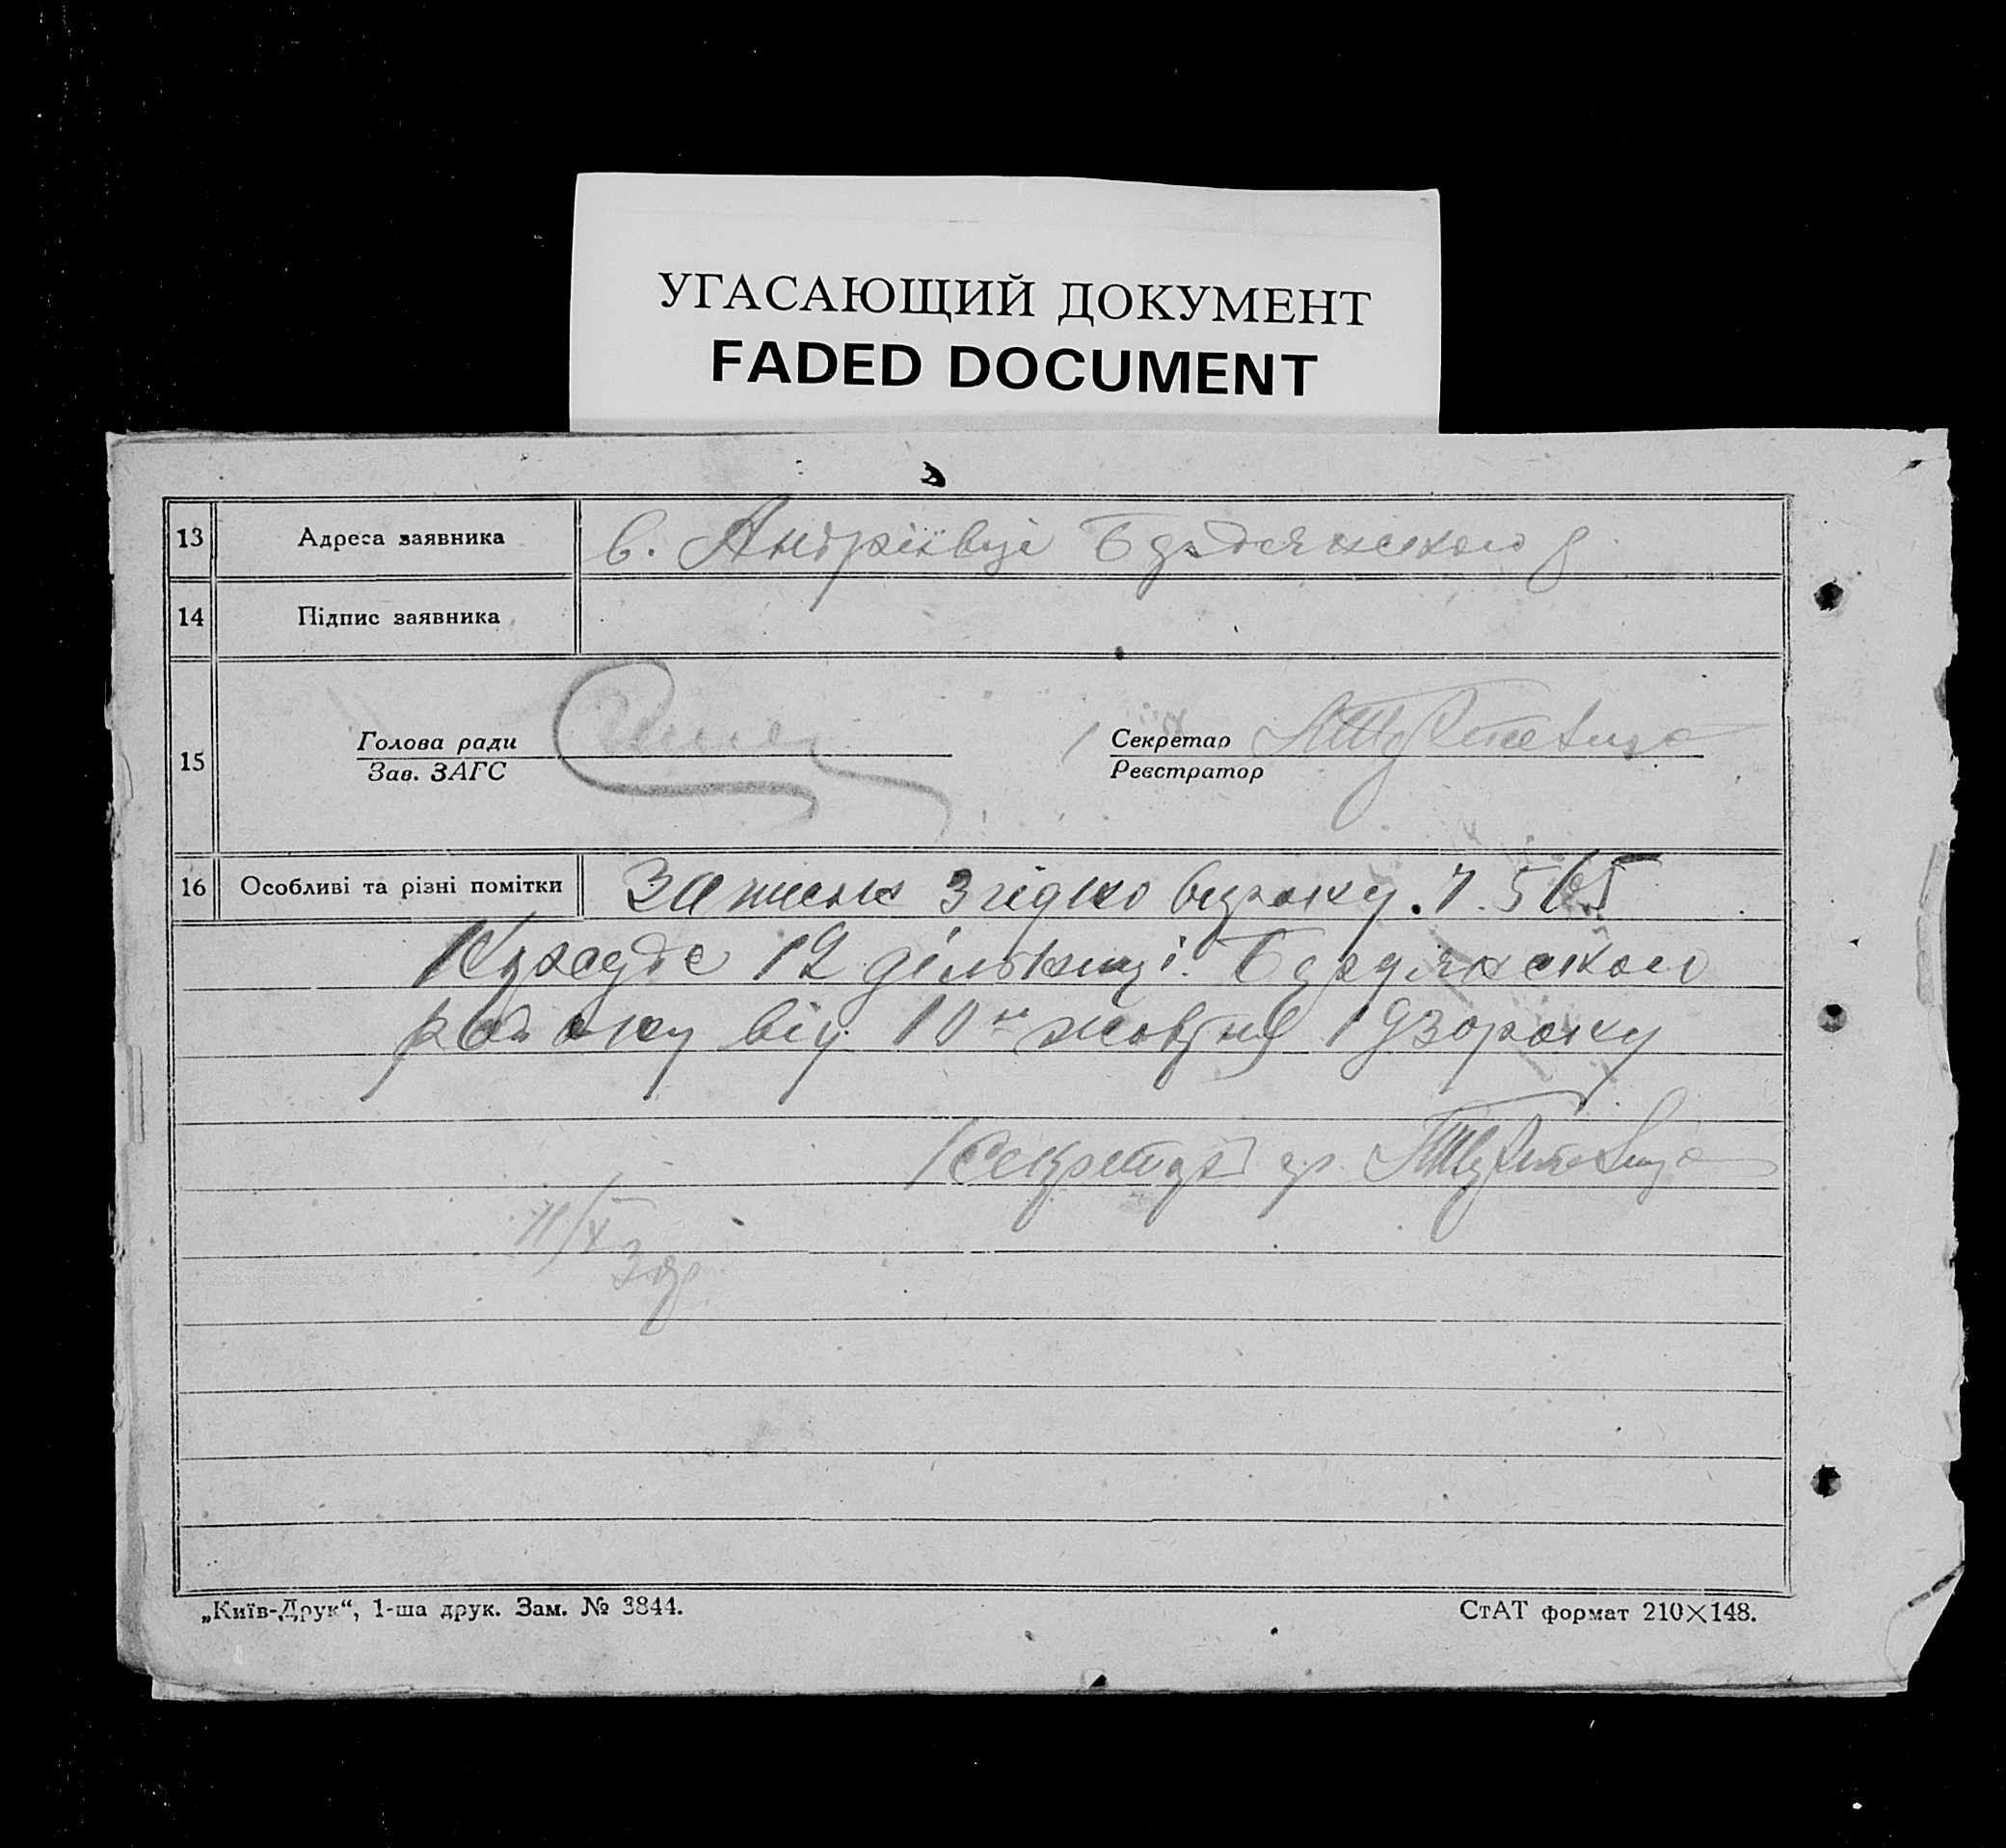 УГАСАЮЩИЙ ДОКУМЕНТ
FADED DOCUMENT
13 Адреса заявника в. Андріївці Бердянського р
14 Підпис заявника
15 Голова ради
Зав. ЗАГС
Секретар
Реєстратор
16 Особливі та різні помітки Запись згідно вироку. 7. 565
Нарсуда 12 дільниці Бердянского
району від 10го жовтня 1930 року
Секретар
11/X 30р
„Київ-Друк“, 1-ша друк. Зам. № 3844.
СтАТ формат 210×148.